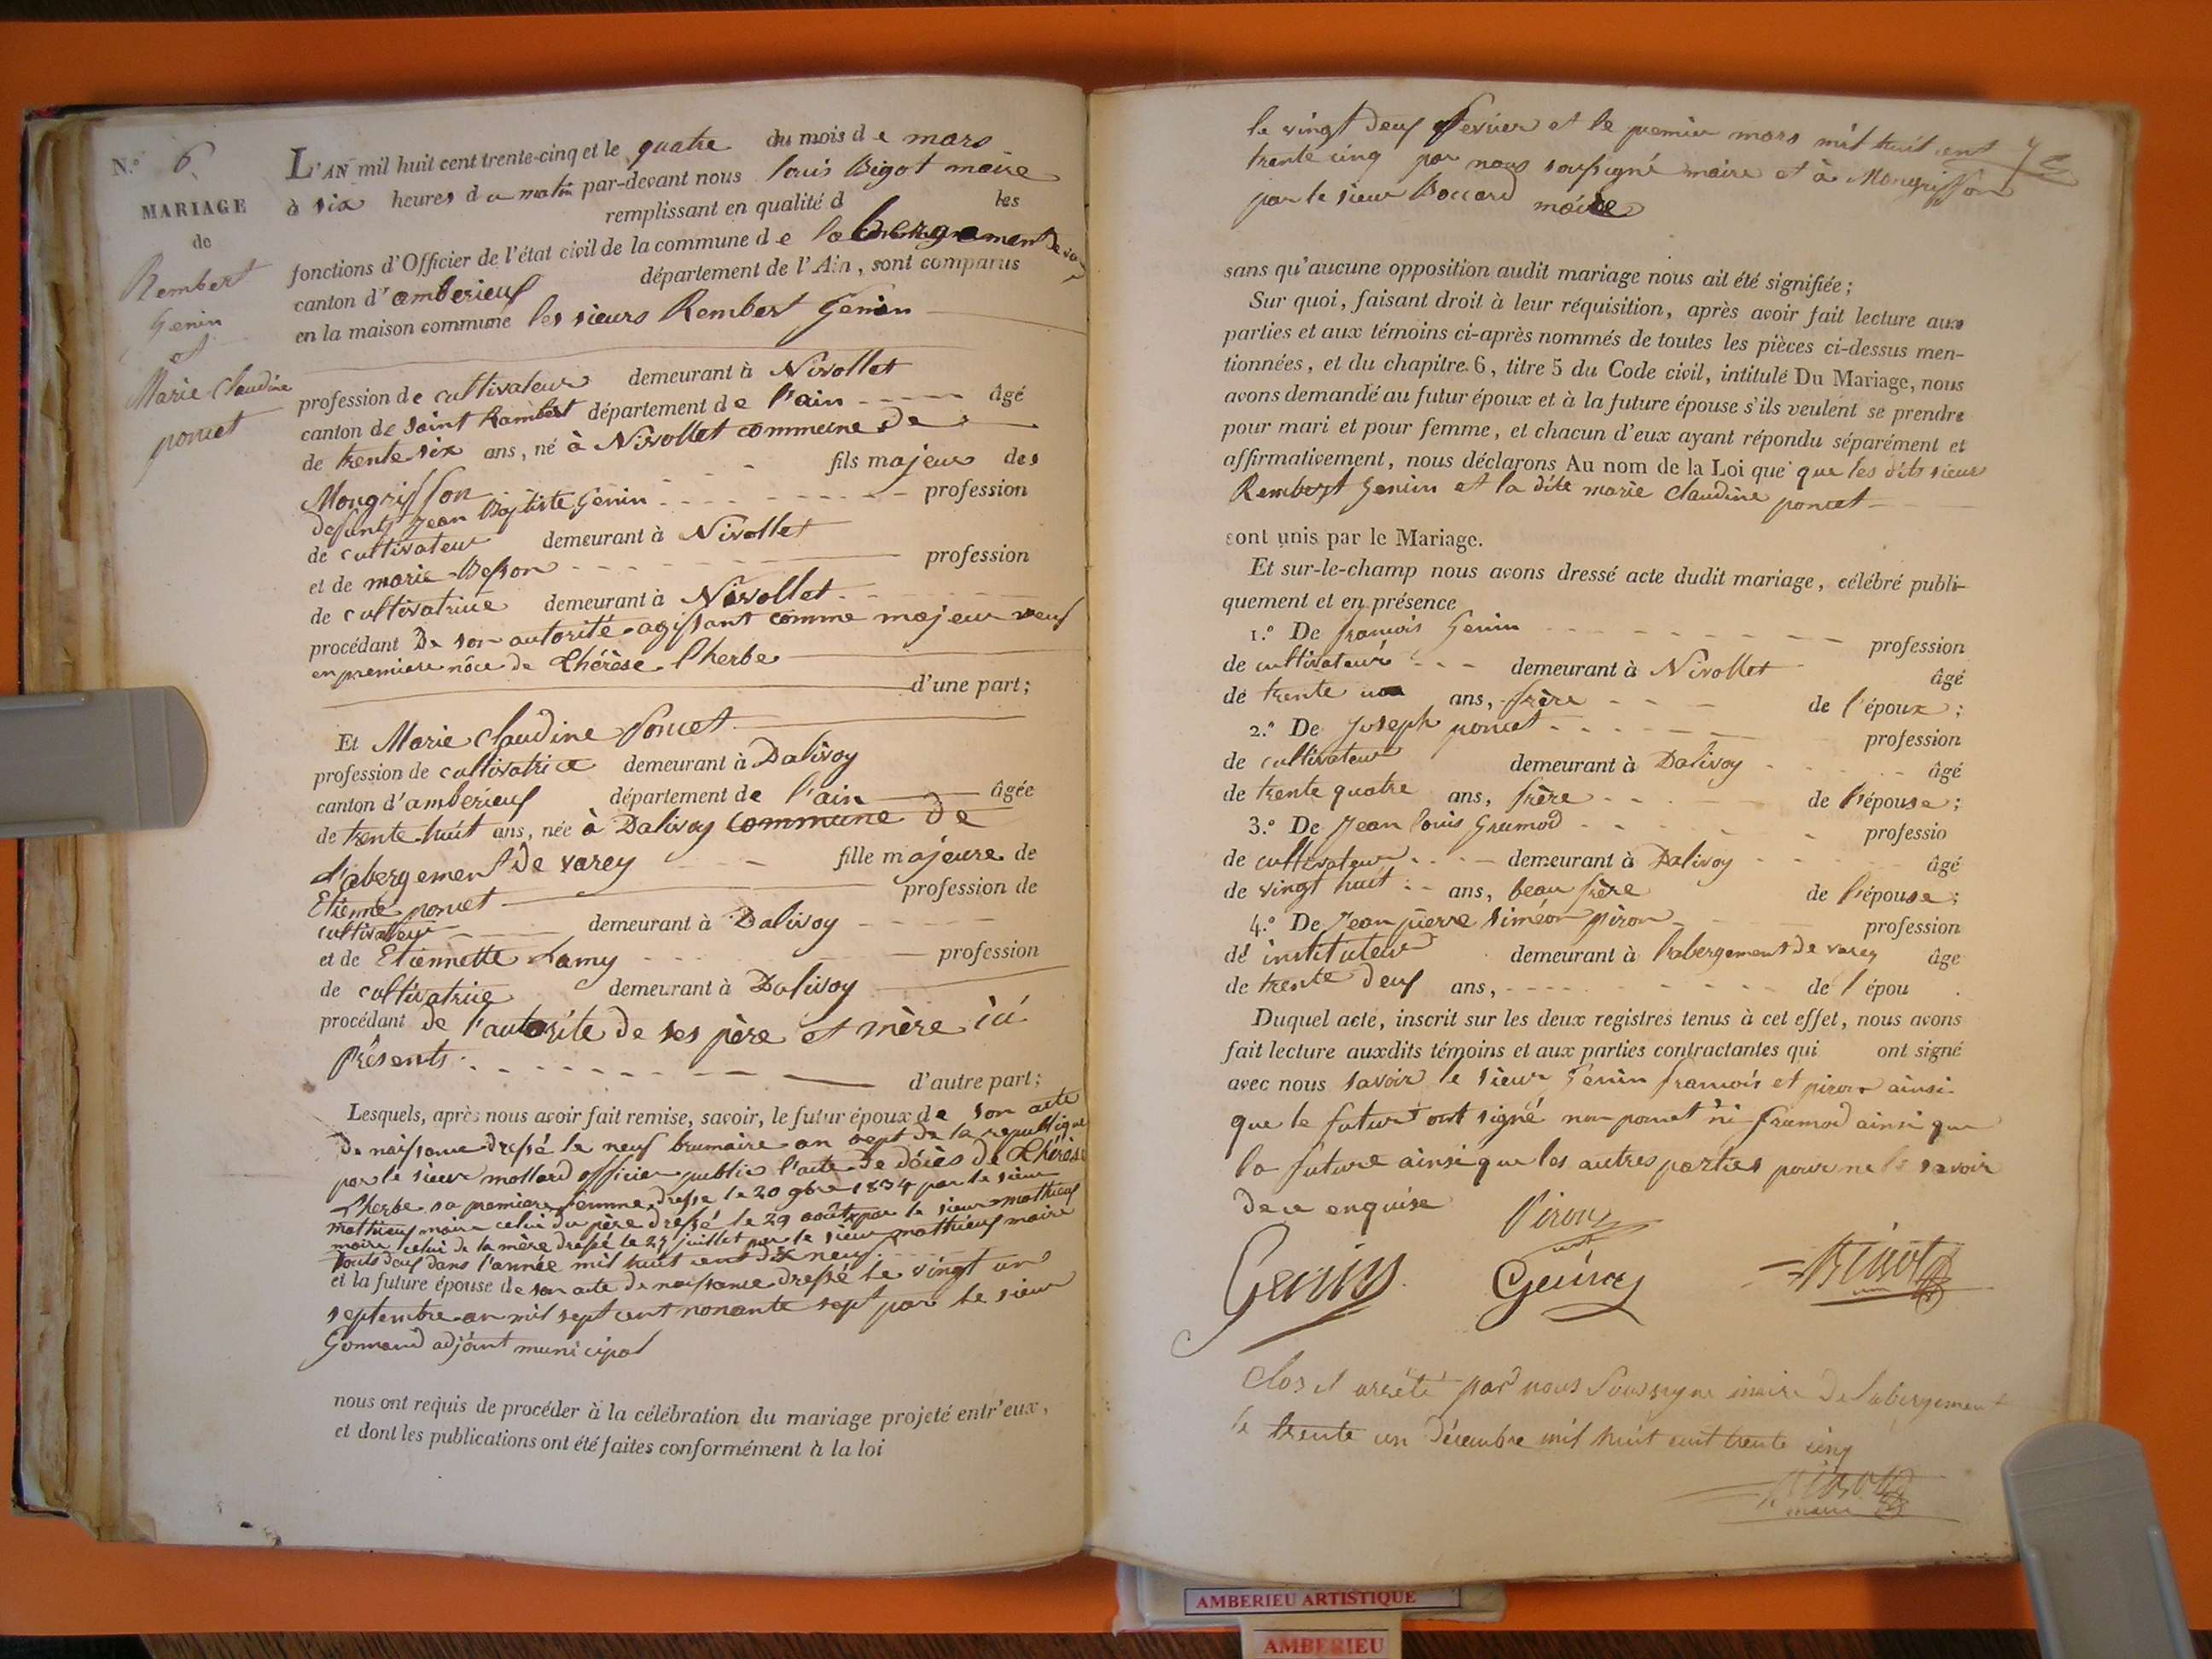 N.º 6.
MARIAGE
de
Rembert
Genin
et
Marie Claudine
poncet
L'AN mil huit cent trente-cinq et le quatre du mois de mars
à six heures du matin par-devant nous louis Bigot maire
remplissant en qualité d les
fonctions d'Officier de l'état civil de la commune de labergement de varey
canton d'amberieux département de l'Ain, sont comparus
en la maison commune les sieurs Rembert Genin
profession de cultivateur demeurant à Nivollet
canton de saint Rambert département de l'ain âgé
de trente six ans, né à Nivollet commune de
Mongriffon fils majeur des
defunts Jean Baptiste Genin profession
de cultivateur demeurant à Nivollet
et de marie Besson profession
de cultivatrice demeurant à Nivollet
procédant De son autorité agissant comme majeur veuf
en premiere nôce de Thérèse Lherbe
d'une part;
Et Marie Claudine Poncet
profession de cultivatrice demeurant à Dalivoy
canton d'amberieux département de l'ain âgée
de trente huit ans, née à Dalivoy commune de
l'abergement De varey fille majeure de
Etienne poncet profession de
cultivateur demeurant à Dalivoy
et de Etiennette Lamy profession
de cultivatrice demeurant à Dalivoy
procédant de l'autorite de ses père et mère ici
présents
d'autre part;
Lesquels, après nous avoir fait remise, savoir, le futur époux de son acte
De naissance dressé le neuf brumaire an sept de la republique
par le sieur mollard officier public l'acte de décès de Thérèse
Lherbe sa premiere femme dresse le 20 gbre 1834 par le sieur
mathieux maire celui du père dressé le 29 août par le sieur mathieux
maire celui de la mère dressé le 25 juillet par le sieur mathieux maire
touts deux dans l'année mil huit cent dix neuf
et la future épouse de son acte de naissance dressé le vingt un
septembre an mil sept cent nonante sept par le sieur
Gonnand adjoint municipal
nous ont requis de procéder à la célébration du mariage projeté entr'eux,
et dont les publications ont été faites conformément à la loi
le vingt deux fevrier et le premier mars mil huit cent
trente cinq par nous soussigné maire et à Mongriffon
par le sieur Boccard maire
sans qu'aucune opposition audit mariage nous ait été signifiée;
Sur quoi, faisant droit à leur réquisition, après avoir fait lecture aux
parties et aux témoins ci-après nommés de toutes les pièces ci-dessus men-
tionnées, et du chapitre 6, titre 5 du Code civil, intitulé Du Mariage, nous
avons demandé au futur époux et à la future épouse s'ils veulent se prendre
pour mari et pour femme, et chacun d'eux ayant répondu séparément et
affirmativement, nous déclarons Au nom de la Loi que que les dits sieur
Rembert Genin et la dite marie claudine poncet
sont unis par le Mariage.
Et sur-le-champ nous avons dressé acte dudit mariage, célébré publi-
quement et en présence
1.º De francois Genin profession
de cultivateur demeurant à Nivollet âgé
de trente un ans, frère de l'époux;
2.º De Joseph poncet profession
de cultivateur demeurant à Dalivoy âgé
de trente quatre ans, frère de l'épouse;
3.º De Jean louis Grumod professio
de cultivateur demeurant à Dalivoy âgé
de vingt huit ans, beau frère de l'épouse;
4.º De Jean pierre siméon piron profession
de instituteur demeurant à l'abergement de varey âge
de trente deux ans, de l'épou
Duquel acte, inscrit sur les deux registres tenus à cet effet, nous avons
fait lecture auxdits témoins et aux parties contractantes qui ont signé
avec nous savoir le sieur Genin francois et piron ainsi
que le futur ont signé non poncet ni Grumod ainsi que
la future ainsi que les autres parties pour ne le savoir
de ce enquise
Piron
Genin Genin Bigot
Clos et arrêté par nous Soussigné maire De labergement
le trente un Décembre mil huit cent trente cinq
Bigot
maire
AMBERIEU ARTISTIQUE
AMBERIEU